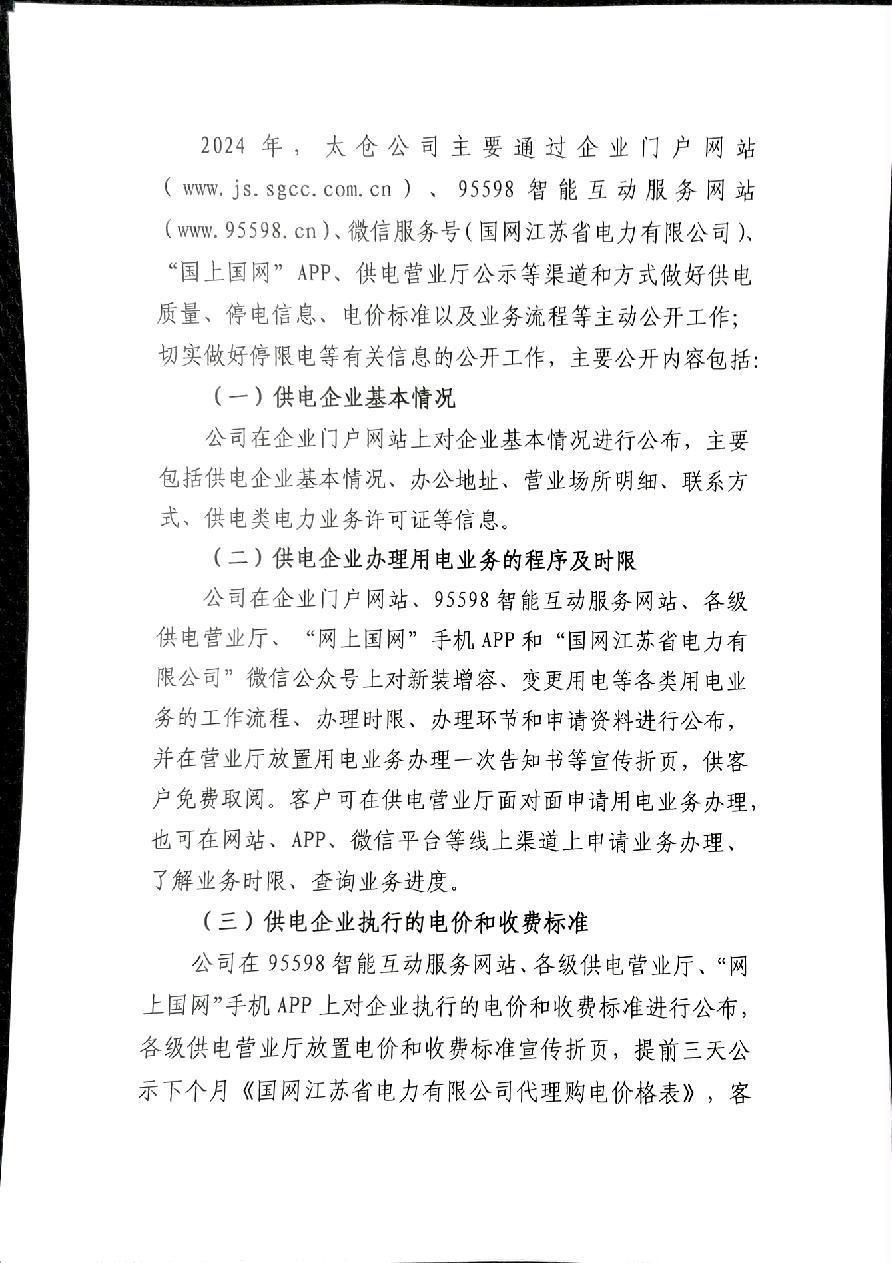 2024 年，太仓公司主要通过企业门户网站
（www.js.sgcc.com.cn）、95598 智能互动服务网站
（www.95598.cn）、微信服务号（国网江苏省电力有限公司）、
“国上国网”APP、供电营业厅公示等渠道和方式做好供电
质量、停电信息、电价标准以及业务流程等主动公开工作；
切实做好停限电等有关信息的公开工作，主要公开内容包括：
（一）供电企业基本情况
公司在企业门户网站上对企业基本情况进行公布，主要
包括供电企业基本情况、办公地址、营业场所明细、联系方
式、供电类电力业务许可证等信息。
（二）供电企业办理用电业务的程序及时限
公司在企业门户网站、95598 智能互动服务网站、各级
供电营业厅、“网上国网”手机 APP 和“国网江苏省电力有
限公司”微信公众号上对新装增容、变更用电等各类用电业
务的工作流程、办理时限、办理环节和申请资料进行公布，
并在营业厅放置用电业务办理一次告知书等宣传折页，供客
户免费取阅。客户可在供电营业厅面对面申请用电业务办理，
也可在网站、APP、微信平台等线上渠道上申请业务办理、
了解业务时限、查询业务进度。
（三）供电企业执行的电价和收费标准
公司在 95598 智能互动服务网站、各级供电营业厅、“网
上国网”手机 APP 上对企业执行的电价和收费标准进行公布，
各级供电营业厅放置电价和收费标准宣传折页，提前三天公
示下个月《国网江苏省电力有限公司代理购电价格表》，客